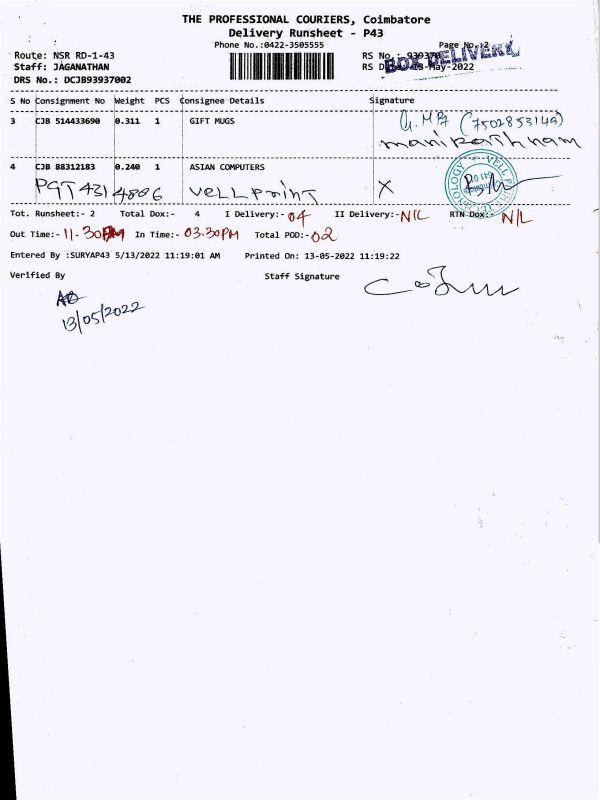 THE PROFESSIONAL COURIERS, Coimbatore
Delivery Runsheet - P43
Phone No.:0422-3505555
Page No.:2
Route: NSR RD-1-43
RS No.
Staff: JAGANATHAN
BOX DELIVERY
RS D 13-May-2022
DRS No.: DCJB93937002
S No Consignment No Weight PCS Consignee Details Signature
3 CJB 514433690 0.311 1 GIFT MUGS
(7502853149)
4 CJB 88312183 0.240 1 ASIAN COMPUTERS
PGT4314806 VELLPrinT X
Tot. Runsheet:- 2 Total Dox:- 4 I Delivery:- 04 II Delivery:- NIL RTN Dox:- NIL
Out Time:- 11.30AM In Time:- 03.30PM Total POD:- 02
Entered By :SURYAP43 5/13/2022 11:19:01 AM Printed On: 13-05-2022 11:19:22
Verified By Staff Signature
13/05/2022